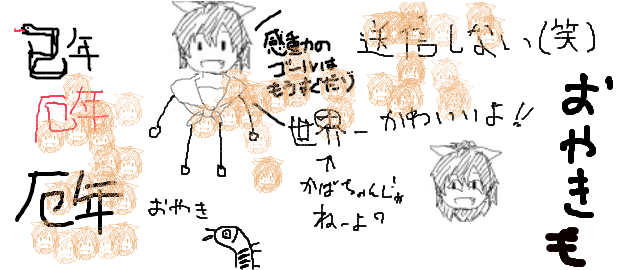 巳年
厄年
厄年
感動の
ゴールは
もうすぐだ!)
送信しない(笑)
世界一かわいいよ!!
かばちゃんじゃ
ねーよ?
おやき
おやきも